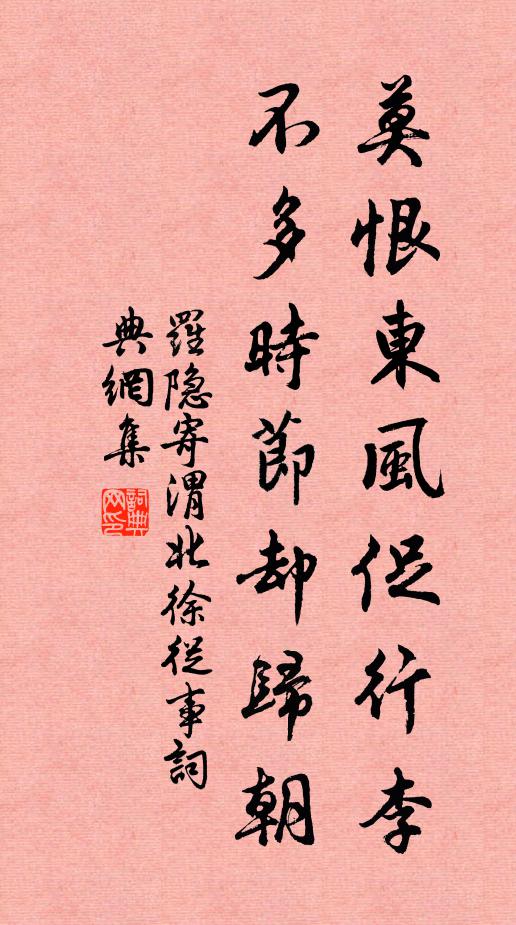 莫恨東風促行李
不多時節却歸朝
羅隐寄渭北徐從事詞
典網集
詞典
网印